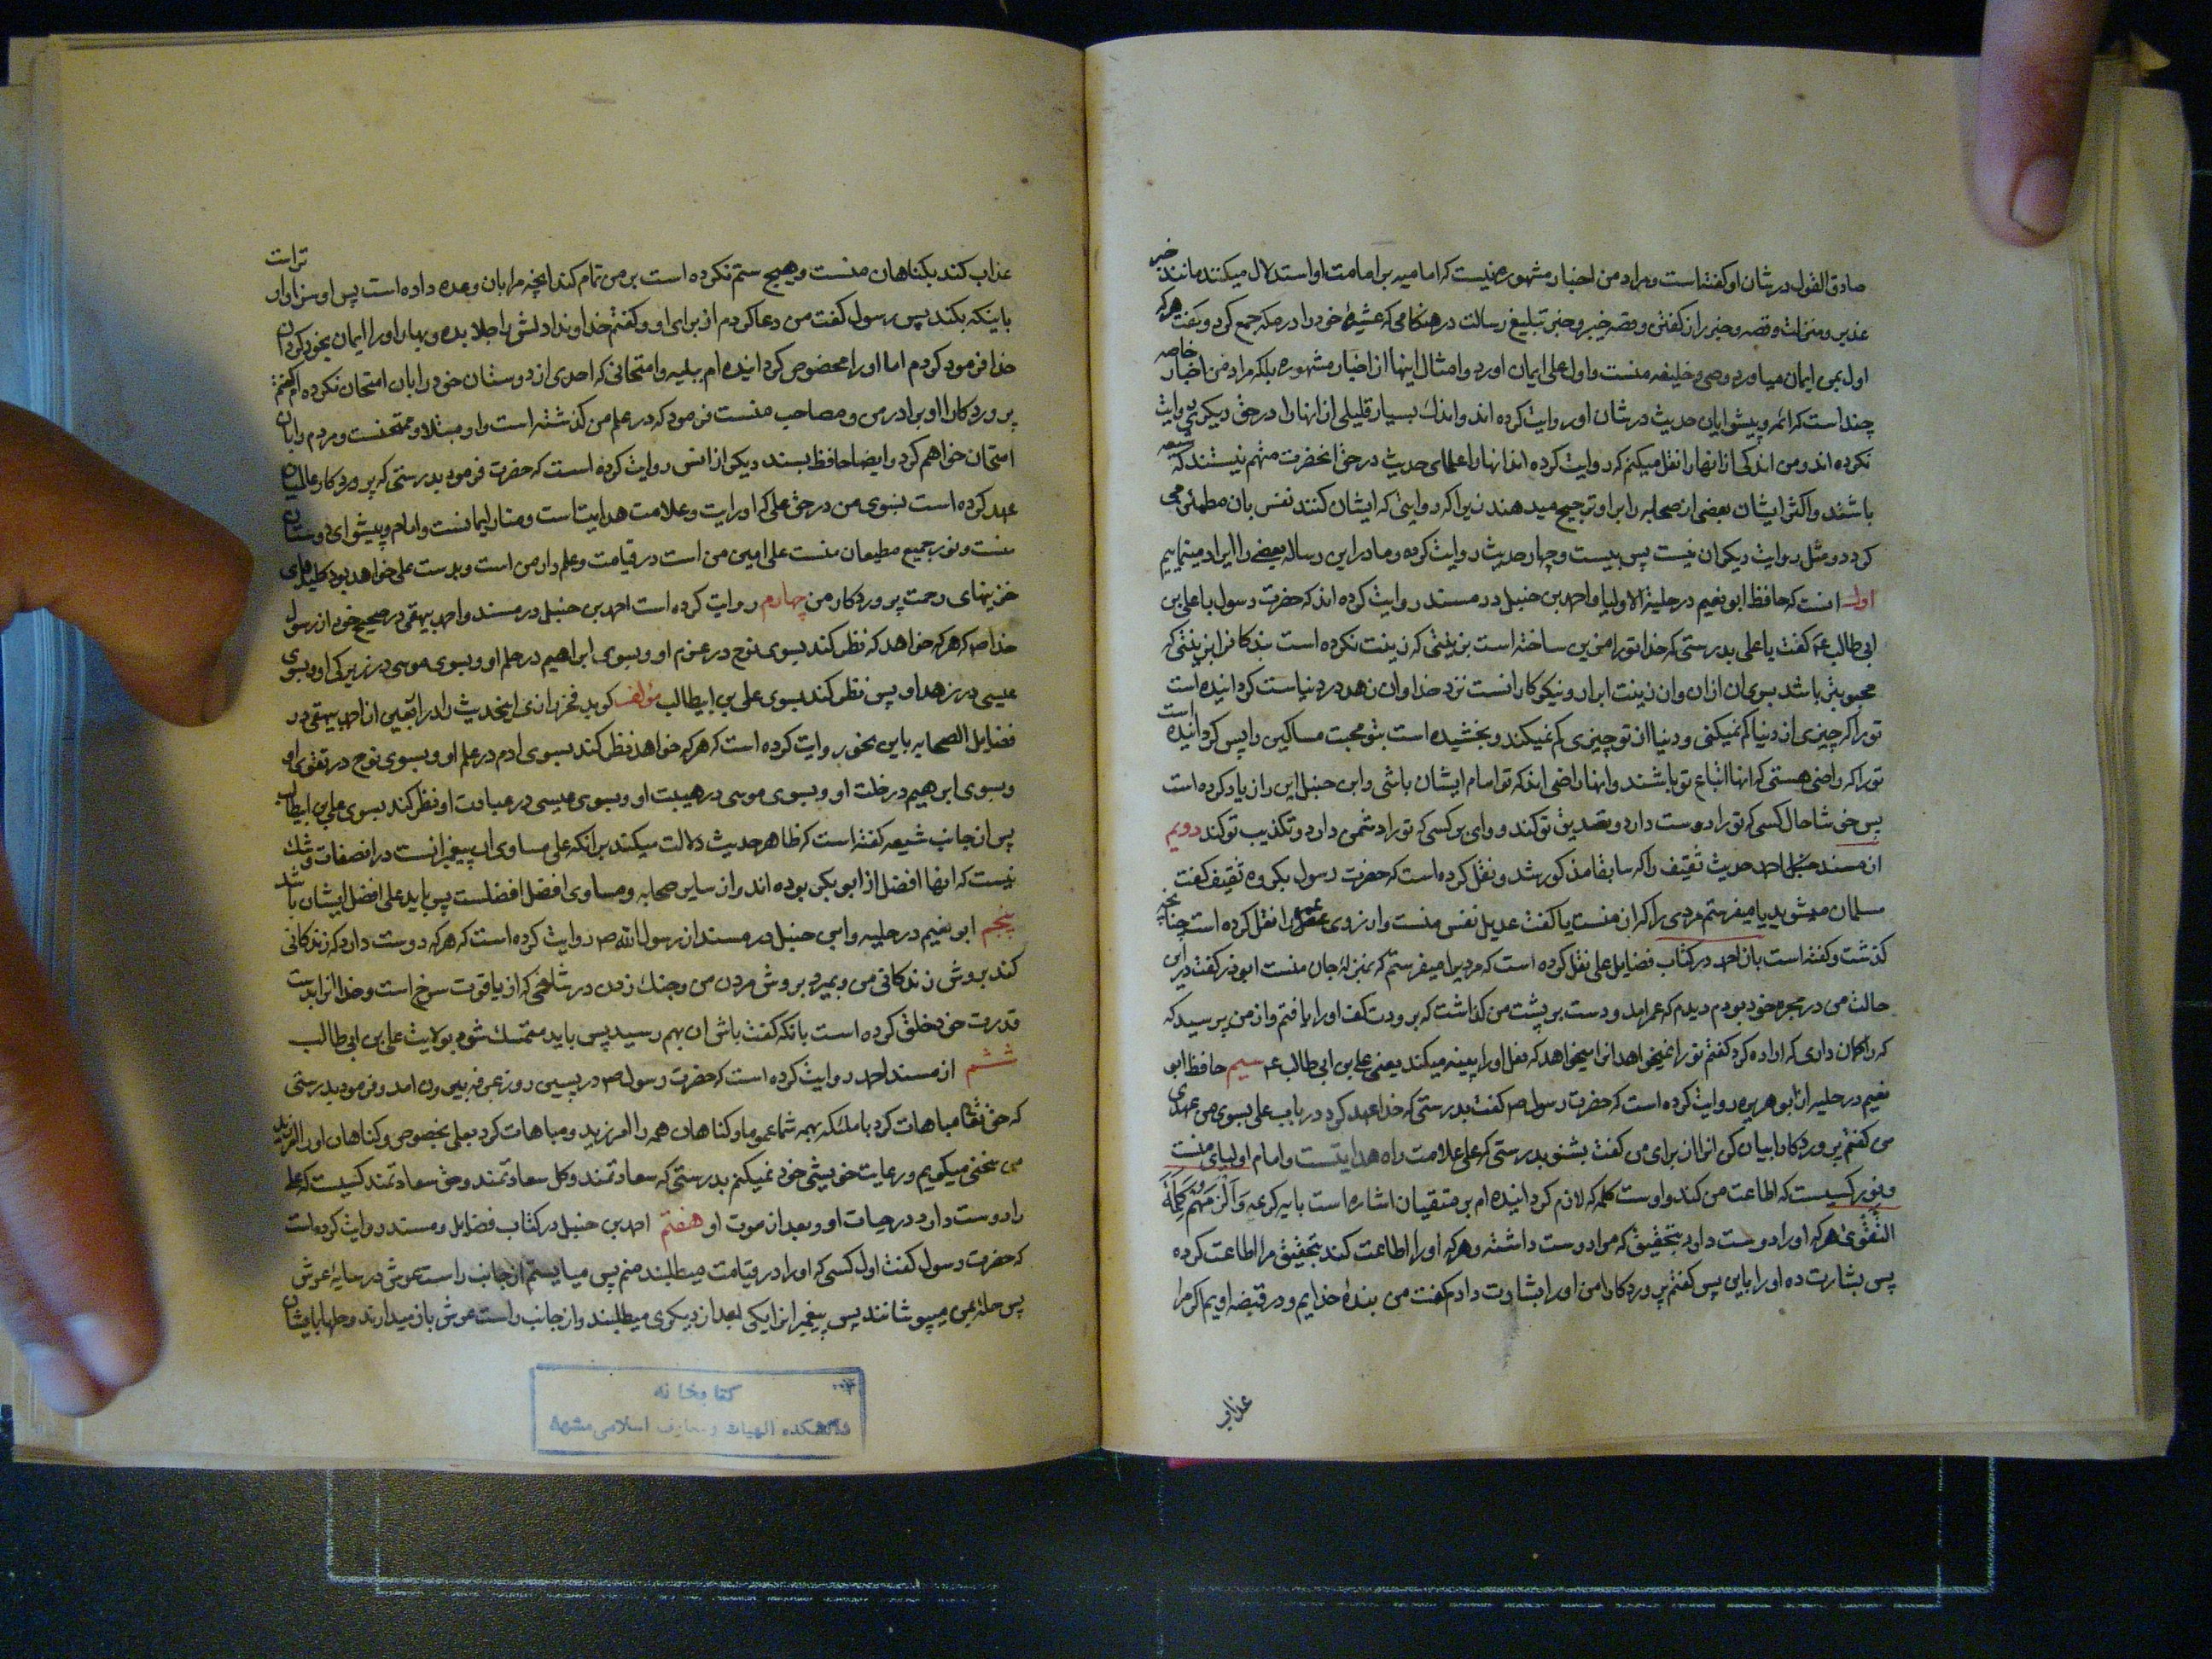 صادق القول در شان او کفته است و مراد من اخبار مشهوره نیست که امامیه بر امامت او استدلال میکنند مانند خبر
غدیر و منزلت و قصه و خبر راز کفتن و قصه خیبر و خبر تبلیغ رسالت در هنکامی که عشیرهٔ خود را در مکه جمع کرد و کفت هر که
اول بمن ایمان میاورد وصی و خلیفه منست و اول علی ایمان اورد و امثال اینها از اخبار مشهوره بلکه مراد من اخبار خاصه
چند است که ائمه و پیشوایان حدیث در شان او روایت کرده اند و اندک بسیار قلیلی از انها را در حق دیکری روایت
نکرده اند و من اندکی از انها را نقل میکنم که روایت کرده اند انها را علمای حدیث در حق انحضرت متهم نیستند که شیعه
باشند و اکثر ایشان بعضی از صحابه را بر او ترجیح میدهند زیرا که روایتی که ایشان کنند نفس بان مطمئن می
کردد و مثل روایت دیکران نیست پس بیست و چهار حدیث روایت کرده و ما در این رساله بعضی را ایراد مینماییم
اول انست که حافظ ابو نعیم در حلیة الاولیا و احمد بن حنبل در مسند روایت کرده اند که حضرت رسول با علی بن
ابی طالب ع کفت یا علی بدرستی که خدا تو را مزین ساخته است بزینتی که زینت نکرده است بندکانرا بزینتی که
محبوبتر باشد بسوی ان از ان و ان زینت ابرار و نیکوکارانست نزد خدا و ان زهد در دنیاست کردانیده است
تو را که چیزی از دنیا کم نمیکنی و دنیا از تو چیزی کم نمیکند و بخشیده است بتو محبت مساکین را پس کردانیده است
تو را که راضی هستی که انها اتباع تو باشند و انها راضی اند که تو امام ایشان باشی و ابن حنبل این را زیاد کرده است
پس خوشا حال کسی که تو را دوست دارد و تصدیق تو کند و وای بر کسی که تو را دشمن دارد و تکذیب تو کند دویم
از مسند احمد حدیث ثقیف را که سابقا مذکور شد و نقل کرده است که حضرت رسول بکروه ثقیف کفت
مسلمان میشوید یا میفرستم مردی را که از منست یا کفت عدیل نفس منست و ارزوی عمر را نقل کرده است چنانچه
کذشت و کفته است بان احمد در کتاب فضایل علی نقل کرده است که مردیرا میفرستم که بمنزلهٔ جان منست ابوذر کفت در این
حالت من در حجره خود بودم دیدم که عمر امد و دست بر پشت من کذاشت که برودت کف او را یافتم و از من پرسید که
که را کمان داری که اراده کرد کفتم تو را نمیخواهد انرا میخواهد که نعل او را پینه میکند یعنی علی بن ابی طالب ع سیم حافظ ابو
نعیم در حلیه از ابو هریره روایت کرده است که حضرت رسول ص کفت بدرستی که خدا عهد کرد در باب علی بسوی من عهدی
من کفتم پروردکارا بیان کن انرا از برای من کفت بشنو بدرستی که علی علامت راه هدایتست و امام اولیای منست
و نور کسیست که اطاعت من کند و اوست کلمه که لازم کردانیده ام بر متقیان اشاره است بایه کریمه وَاَلْزَمَهُمْ کَلِمَةَ
التَّقْوی هر که او را دوست دارد بتحقیق که مرا دوست داشته و هر که او را اطاعت کند بتحقیق مرا اطاعت کرده
پس بشارت ده او را باین پس کفتم پروردکارا من او را بشارت دادم کفت من بندهٔ خدایم و در قبضه اویم اکر مرا
عذاب
عذاب کند بکناهان منست و هیچ ستم نکرده است بر من تمام کند انچه مرا بان وعده داده است پس او سزاوار تراست
باینکه بکند پس رسول کفت من دعا کردم از برای او و کفتم خداوندا دلش را جلا بده و بهار او را ایمان بخود کردان
خدا فرمود کردم اما او را مخصوص کردانیده ام ببلیه و امتحانی که احدی از دوستان خود را بان امتحان نکرده ام کفتم
پروردکارا او برادر من و مصاحب منست فرمود که در علم من کذشته است و او مبتلا و ممتحنست و مردم را بان
امتحان خواهم کرد و ایضا حافظ بسند دیکر از انس روایت کرده است که حضرت فرمود بدرستی که پروردکار عالمیان
عهد کرده است بسوی من در حق علی که او رایت و علامت هدایت است و منار ایمانست و امام و پیشوای دوستان
منست و نور جمیع مطیعان منست علی امین من است در قیامت و علم دار من است و بدست علی خواهد بود کلیدهای
خزینهای رحمت پروردکار من چهارم روایت کرده است احمد بن حنبل در مسند و احمد بیهقی در صحیح خود از رسول
خدا ص که هر که خواهد که نظر کند بسوی نوح در عزم او و بسوی ابراهیم در حلم او و بسوی موسی در زیرکی او و بسوی
عیسی در زهد او پس نظر کند بسوی علی بن ابیطالب مؤلف کوید فخر رازی اینحدیث را در اربعین از احمد بیهقی در
فضایل الصحابه باین نحو روایت کرده است که هر که خواهد نظر کند بسوی ادم در علم او و بسوی نوح در تقوی او
و بسوی ابرهیم در خلت او و بسوی موسی در هیبت او و بسوی عیسی در عبادت او نظر کند بسوی علی بن ابیطالب
پس از جانب شیعه کفته است که ظاهر حدیث دلالت میکند بر انکه علی مساوی این پیغمبرانست در این صفات و شک
نیست که انها افضل از ابو بکر بوده اند و از سایر صحابه و مساوی افضل افضلست پس باید علی افضل ایشان باشد
پنجم ابو نعیم در حلیه و ابن حنبل در مسند از رسول الله ص روایت کرده است که هر که دوست دارد که زندکانی
کند بروش زندکانی من و بمیرد بروش مردن من و چنک زدن در شاخی که از یاقوت سرخ است و خدا انرا بدست
قدرت خود خلق کرده است بانکه کفت باش ان بهم رسید پس باید متمسک شود بولایت علی بن ابی طالب
ششم از مسند احمد روایت کرده است که حضرت رسول ص در پسین روز عرفه بیرون امد و فرمود بدرستی
که حق تعا مباهات کرد با ملئکه بهمه شما عموما و کناهان همه را امرزید و مباهات کرد بعلی بخصوص و کناهان او را امرزید
من سخنی میکویم و رعایت خویشی خود نمیکنم بدرستی که سعادتمند و کل سعادتمند و حق سعادتمند کسیست که علی
را دوست دارد در حیات او و بعد از موت او هفتم احمد بن حنبل در کتاب فضایل و مسند روایت کرده است
که حضرت رسول کفت اول کسی که او را در قیامت میطلبند منم پس میایستم از جانب راست عرش در سایهٔ عرش
پس حله بمن میپوشانند پس پیغمبرانرا یکی بعد از دیکری میطلبند و از جانب راست عرش باز میدارند و حلها بایشان
کتابخانه
دانشکده الهیات و معارف اسلامی مشهد